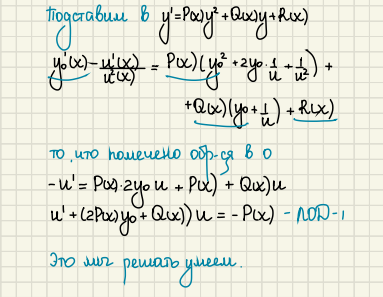 Подставим в y' = P(x)y² + Q(x)y + R(x)
y₀'(x) - u'(x)/u²(x) = P(x)(y₀² + 2y₀·1/u + 1/u²) +
+ Q(x)(y₀ + 1/u) + R(x)
то, что помечено обр-ся в 0
-u' = P(x)·2y₀u + P(x) + Q(x)u
u' + (2P(x)y₀ + Q(x))u = -P(x) - ЛОДУ-1
Это мы решать умеем.